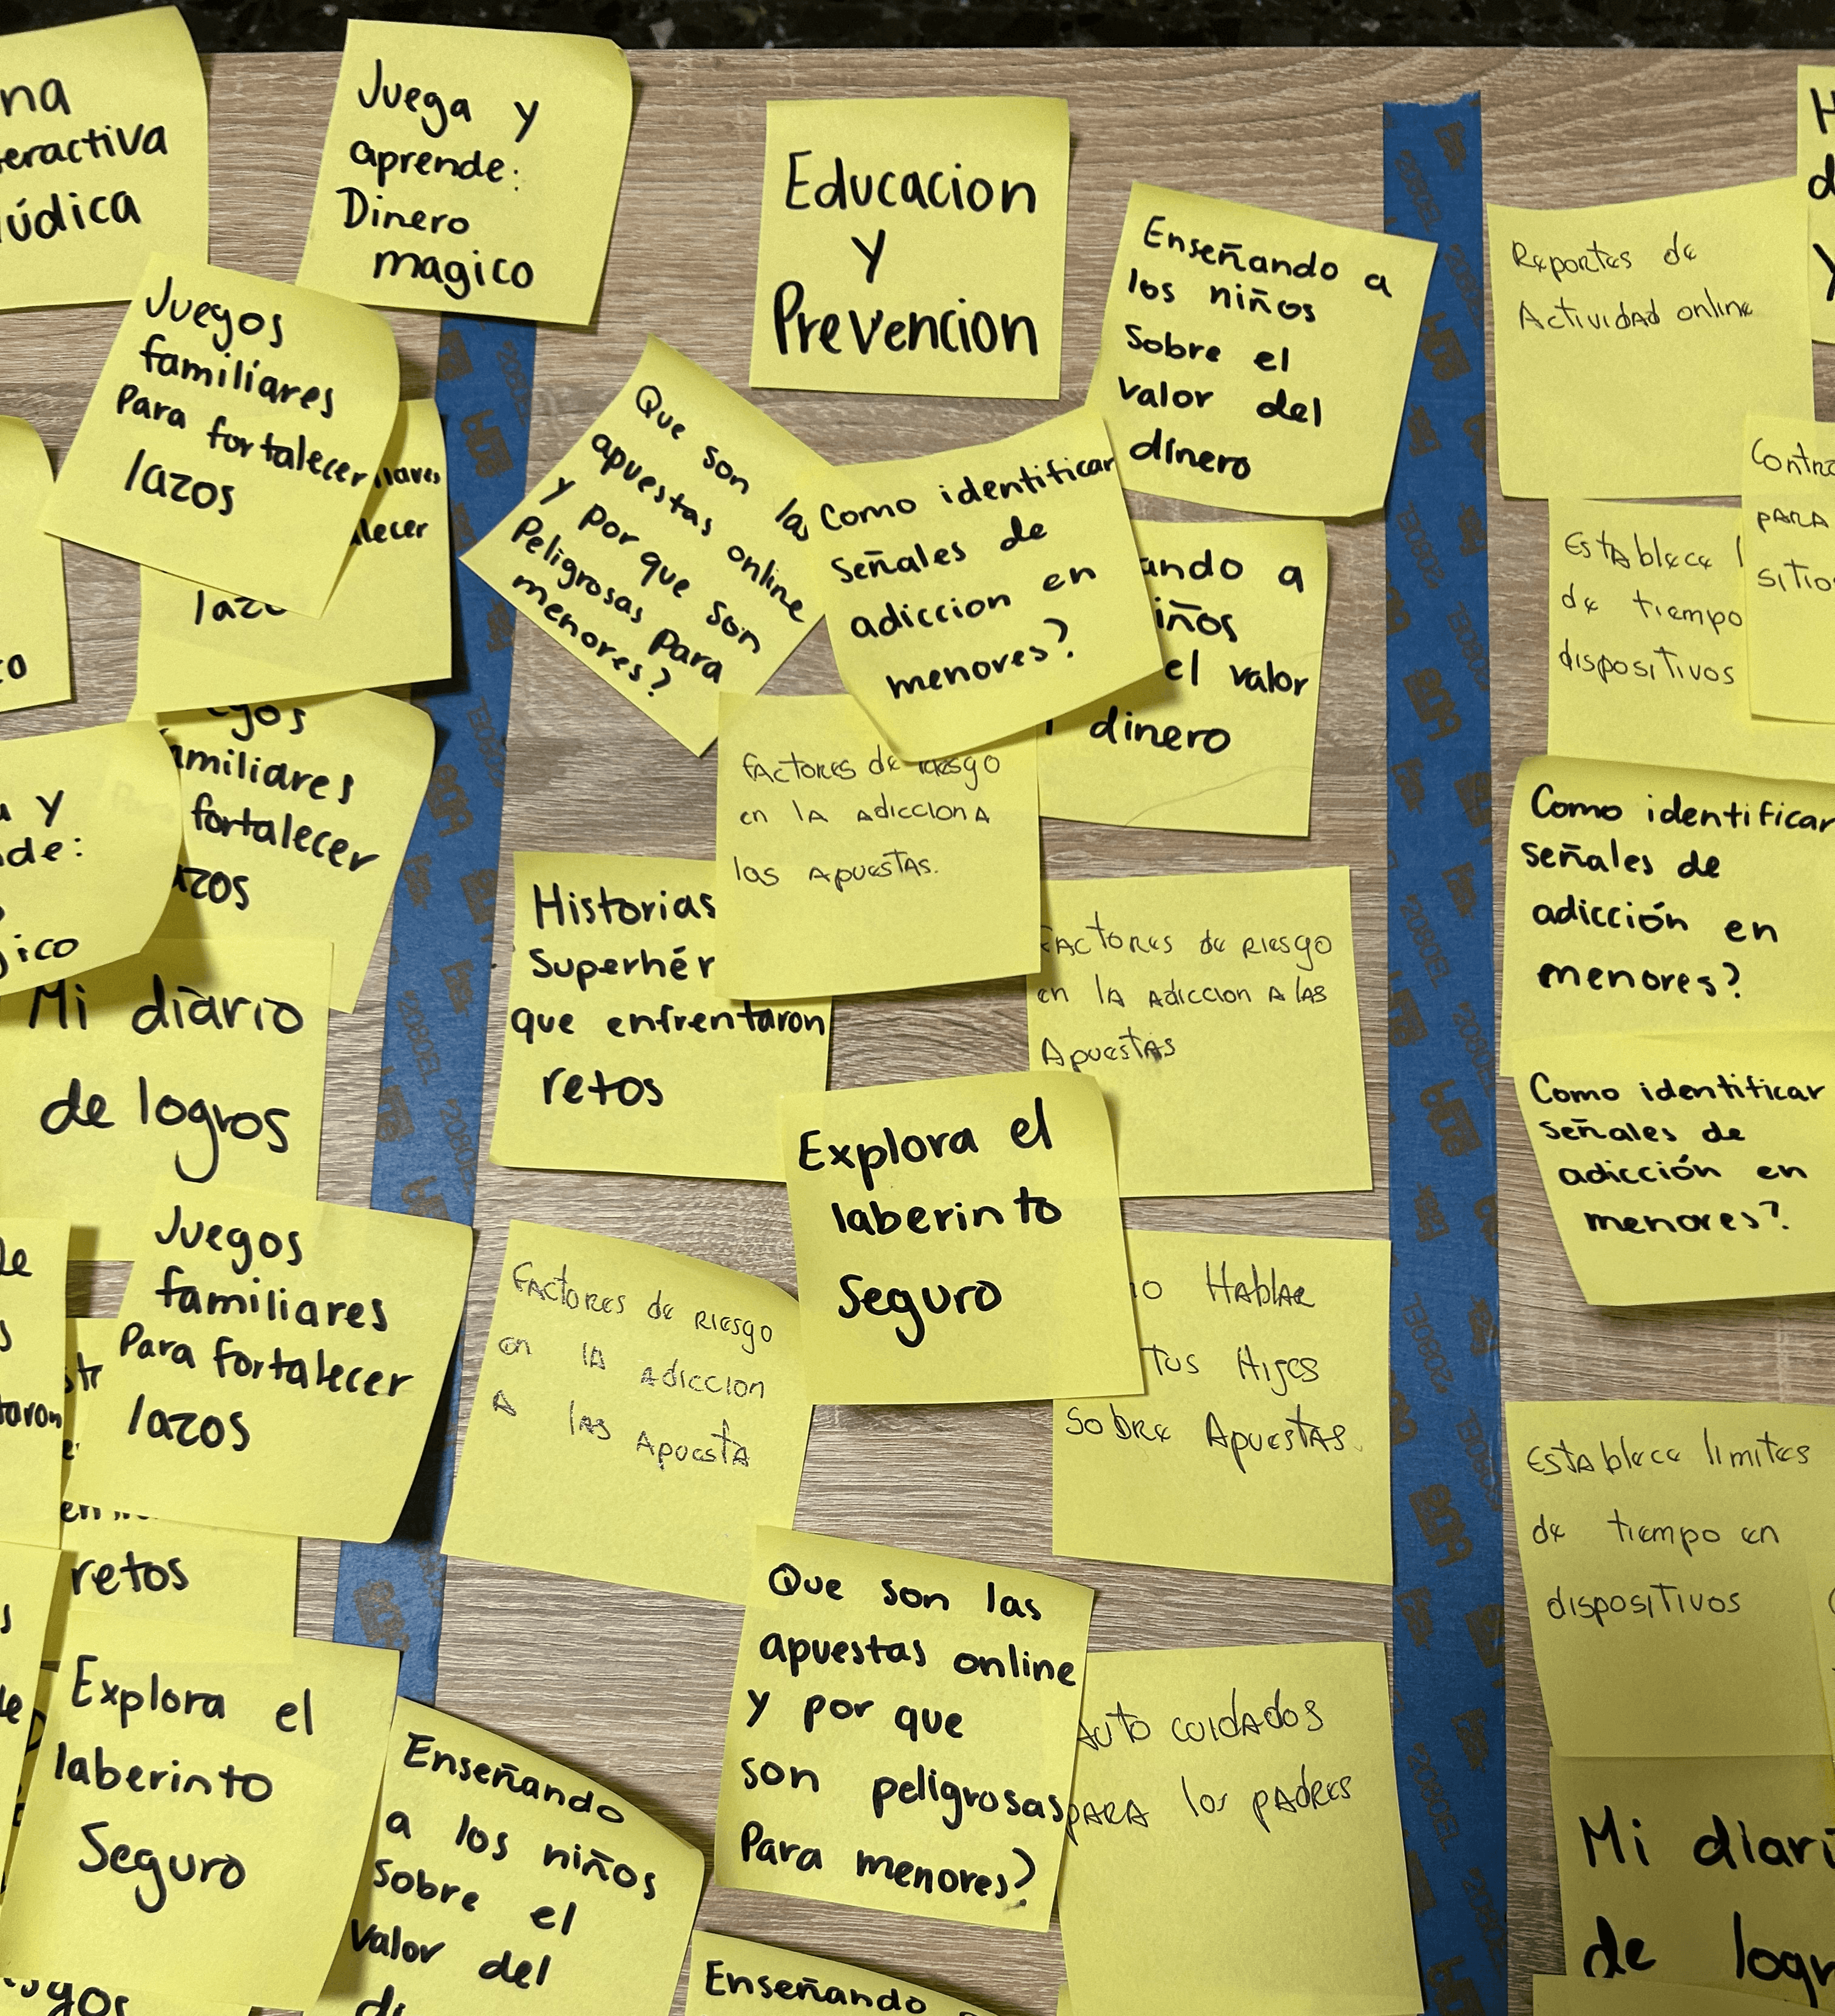 na
eractiva
údica
Juega y
aprende:
Dinero
magico
Juegos
familiares
Para fortalecer
lazos
lecer
familiares
fortalecer
zos
y
de:
ico
Mi diario
de logros
Juegos
familiares
Para fortalecer
lazos
taron
retos
Explora el
laberinto
Seguro
Enseñando
a los niños
Sobre el
valor del
Educacion
y
Prevencion
Enseñando a
los niños
Sobre el
valor del
dinero
Que son las
apuestas online
y por que son
Peligrosas Para
menores?
Como identificar
Señales de
adiccion en
menores?
ando a
iños
el valor
dinero
Factores de riesgo
en la adiccion a
las apuestas.
Historias
Superhér
que enfrentaron
retos
Factores de riesgo
en la adiccion a las
Apuestas
Explora el
laberinto
Seguro
Factores de riesgo
en la adiccion
a las apuesta
o Hablar
tus Hijos
sobre Apuestas.
Que son las
apuestas online
y por que
son peligrosas
Para menores?
Auto cuidados
para los padres
Enseñando
Reportes de
Actividad online
Contro
para
sitio
Establece l
de tiempo
dispositivos
Como identificar
señales de
adicción en
menores?
Como identificar
señales de
adicción en
menores?
Establece limites
de tiempo en
dispositivos
Mi diari
de logr